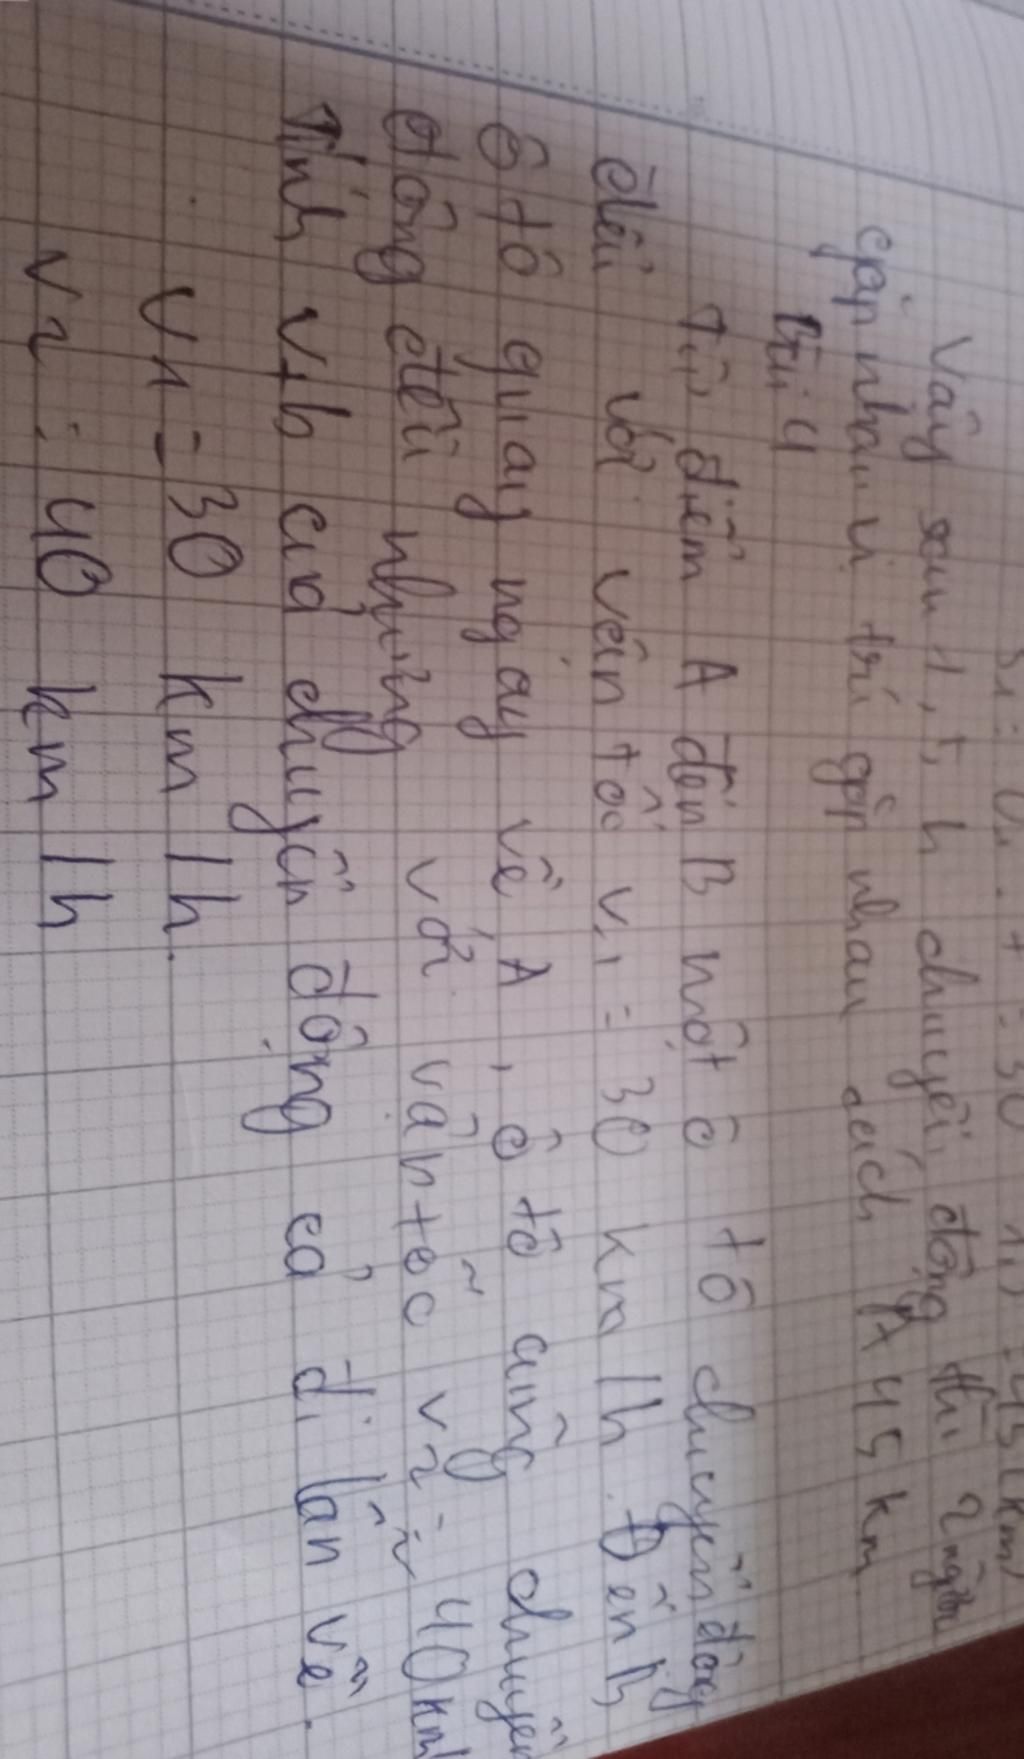 S1 = V1 . t = 30 . 1,5 = 45 (km)
Vậy sau 1,5 h chuyển động thì 2 người
gặp nhau vị trí gặp nhau cách A 45 km
Bài 4
Từ điểm A đến B một ô tô chuyển động
đều với vận tốc V1 = 30 km/h. Đến B
ô tô quay ngay về A, ô tô cũng chuyển
động đều nhưng với vận tốc V2 = 40km/
Tính Vtb của chuyển động cả đi lẫn về.
V1 = 30 km/h.
V2 : 40 km/h